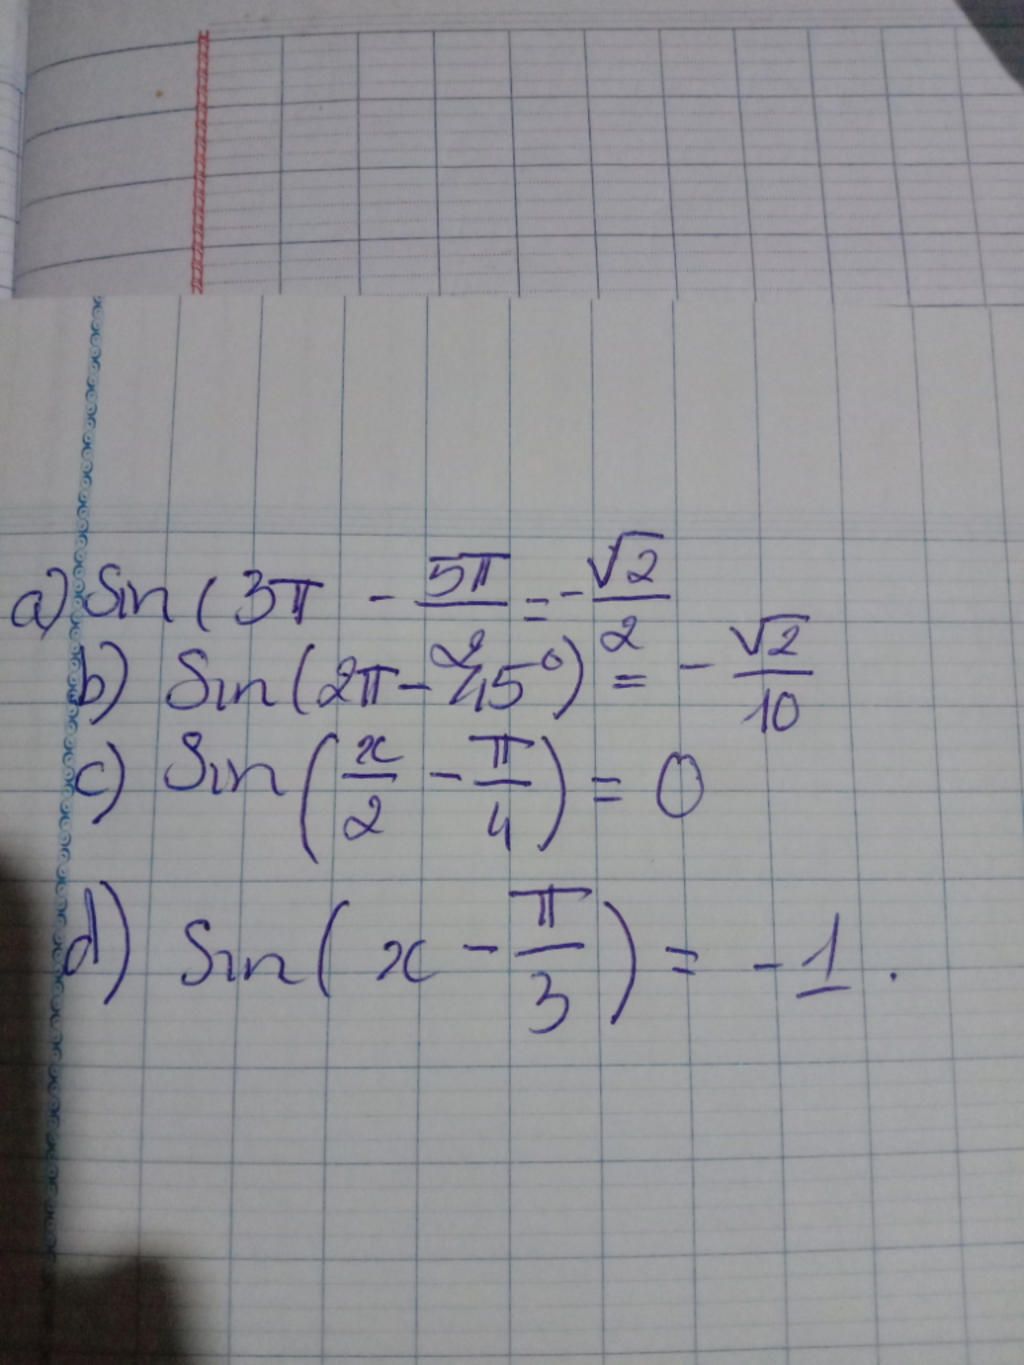 a) Sin ( 3π - 5π/2 = - √2/2
b) Sin (2π - 45°) = - √2/10
c) Sin ( x/2 - π/4 ) = 0
d) Sin ( x - π/3 ) = - 1 .